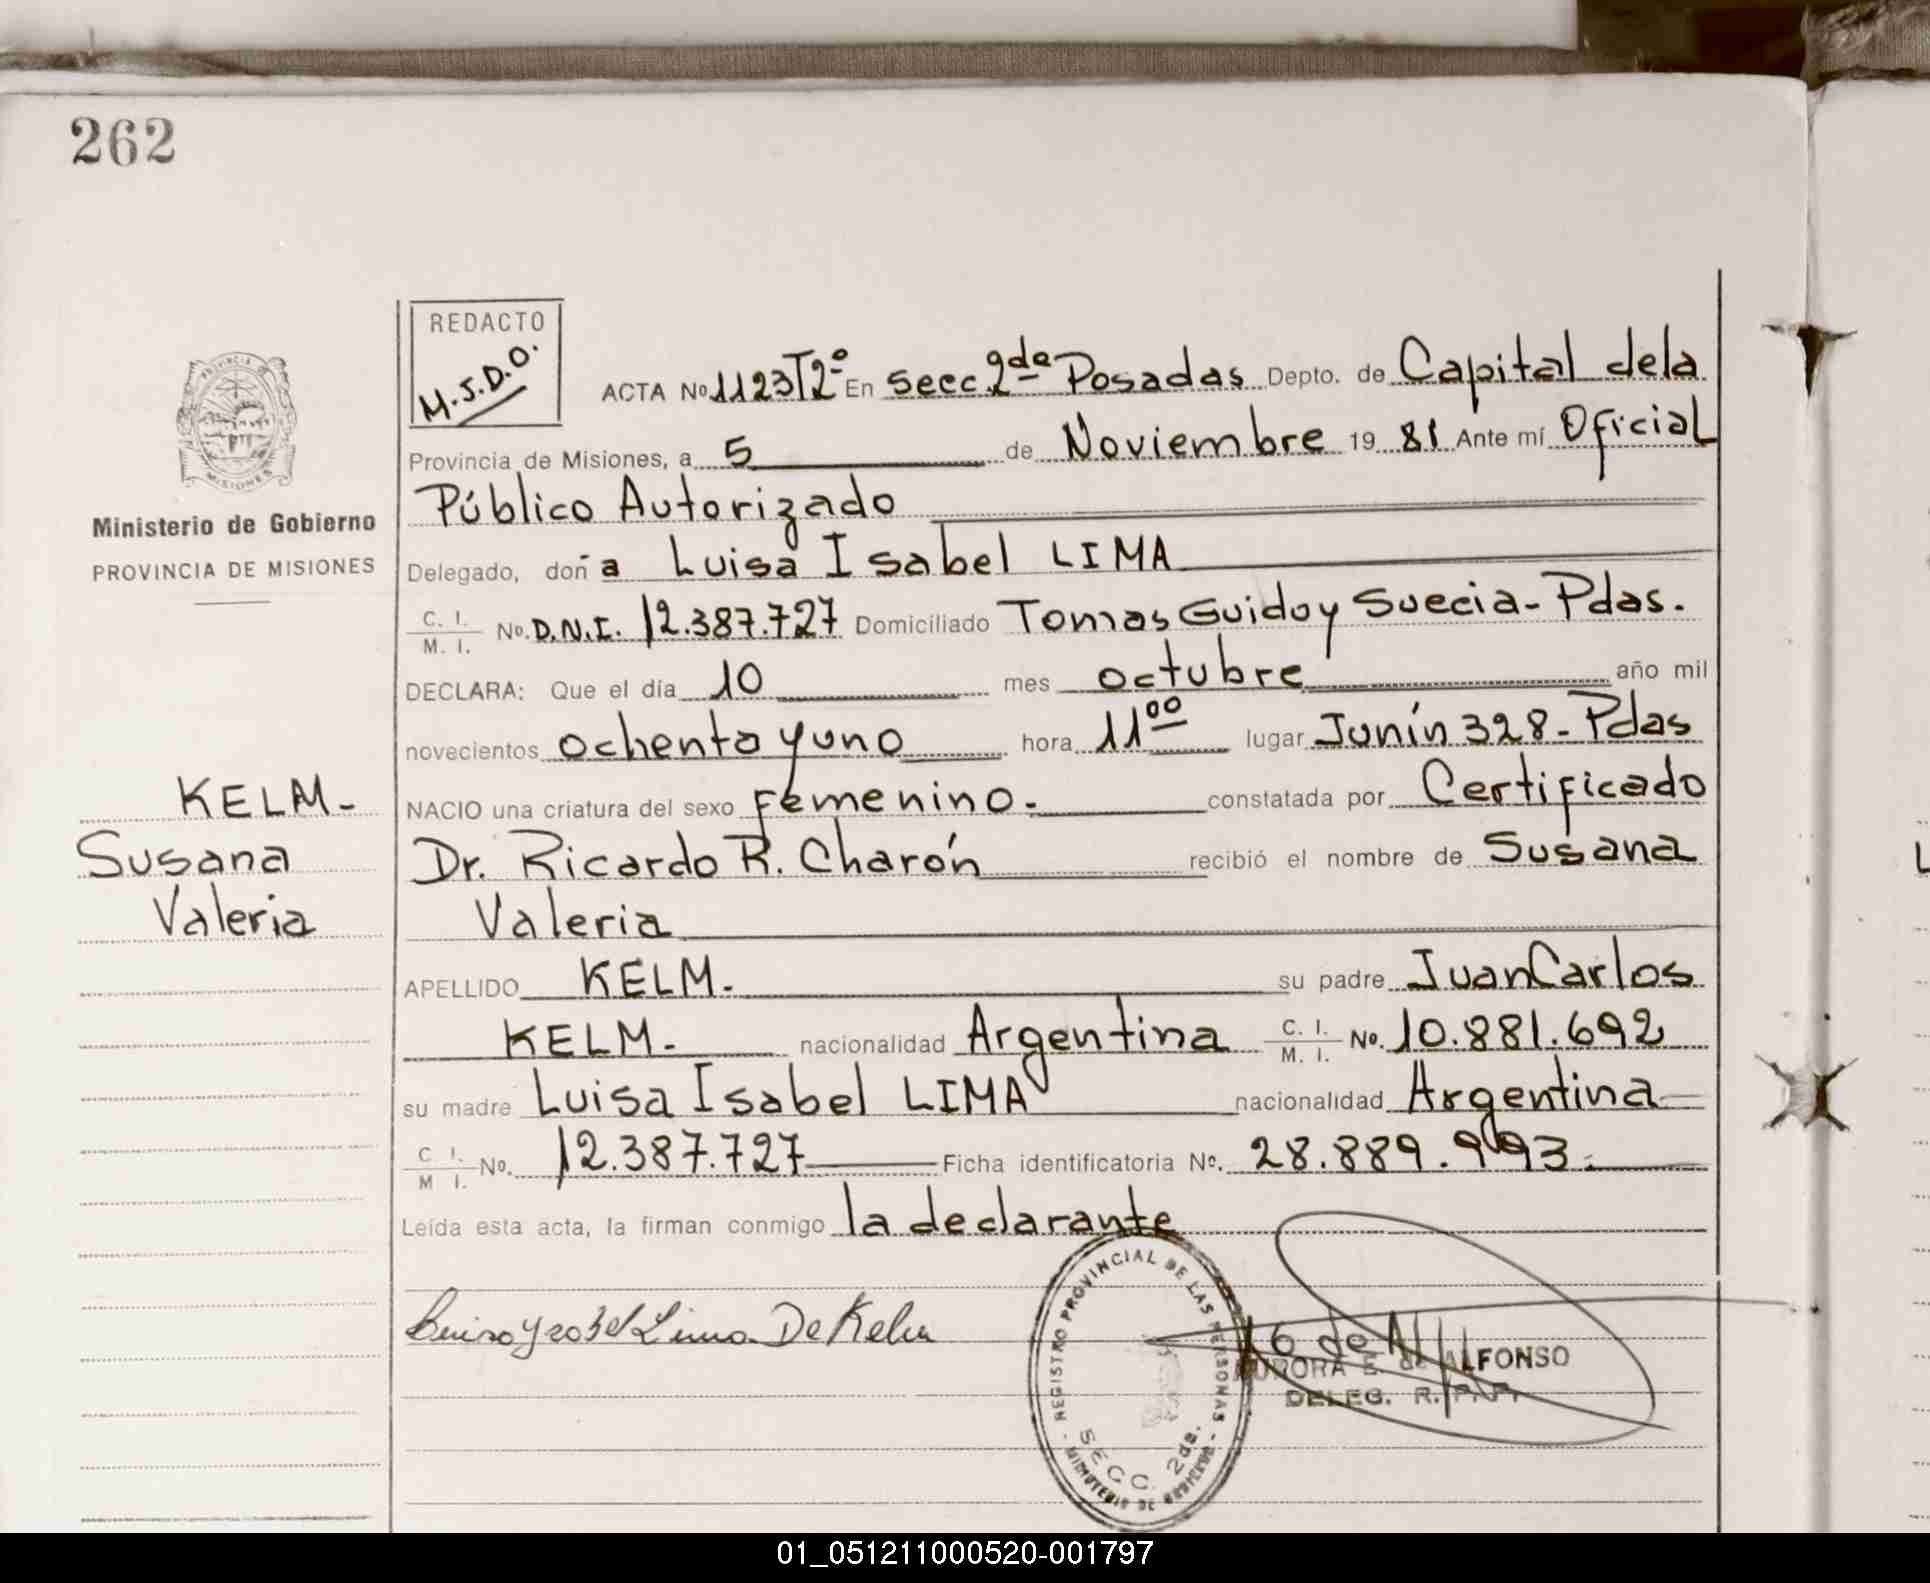 262
REDACTO
M.S.D.O.
ACTA No 1123T2º En Secc 2da Posadas Depto. de Capital dela
Provincia de Misiones, a 5 de Noviembre 19 81 Ante mí Oficial
Público Autorizado
Delegado, doña Luisa Isabel LIMA
C. I. / M. I. No. D.N.I. 12.387.727 Domiciliado Tomas Guido y Suecia - Pdas.
DECLARA: Que el día 10 mes octubre año mil
novecientos ochenta y uno hora 11 00 lugar Junín 328 - Pdas
NACIO una criatura del sexo Femenino. constatada por Certificado
Dr. Ricardo R. Charón recibió el nombre de Susana
Valeria
APELLIDO KELM. su padre Juan Carlos
KELM. nacionalidad Argentina C. I. / M. I. No. 10.881.692
su madre Luisa Isabel LIMA nacionalidad Argentina
C. I. / M. I. No. 12.387.727 Ficha identificatoria No. 28.889.993.
Leída esta acta, la firman conmigo la declarante
PROVINCIA
MISIONES
Ministerio de Gobierno
PROVINCIA DE MISIONES
KELM -
Susana
Valeria
Lima De Kelm
REGISTRO PROVINCIAL DE LAS PERSONAS - MINISTERIO DE GOBIERNO -
SECC. 2da.
AURORA E. de ALFONSO
DELEG. R.P.P.
01_051211000520-001797